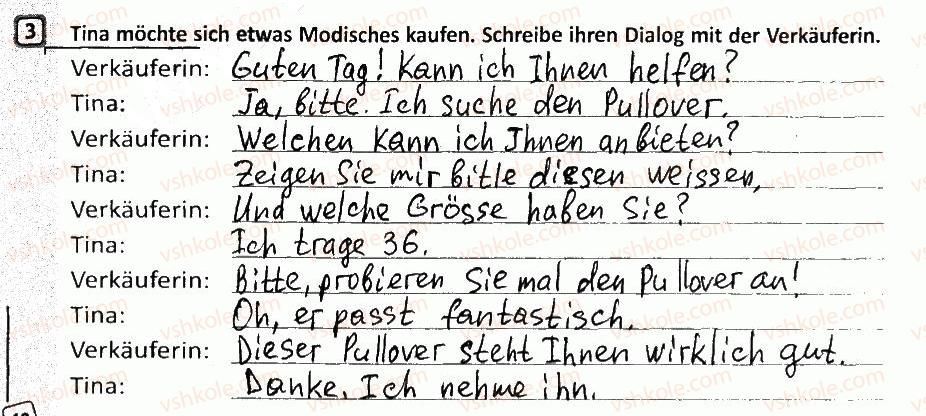 3 Tina möchte sich etwas Modisches kaufen. Schreibe ihren Dialog mit der Verkäuferin.
Verkäuferin: Guten Tag! Kann ich Ihnen helfen?
Tina: Ja, bitte. Ich suche den Pullover.
Verkäuferin: Welchen kann ich Ihnen anbieten?
Tina: Zeigen Sie mir bitte diesen weissen,
Verkäuferin: Und welche Grösse haben Sie?
Tina: Ich trage 36.
Verkäuferin: Bitte, probieren Sie mal den Pullover an!
Tina: Oh, er passt fantastisch.
Verkäuferin: Dieser Pullover steht Ihnen wirklich gut.
Tina: Danke. Ich nehme ihn.